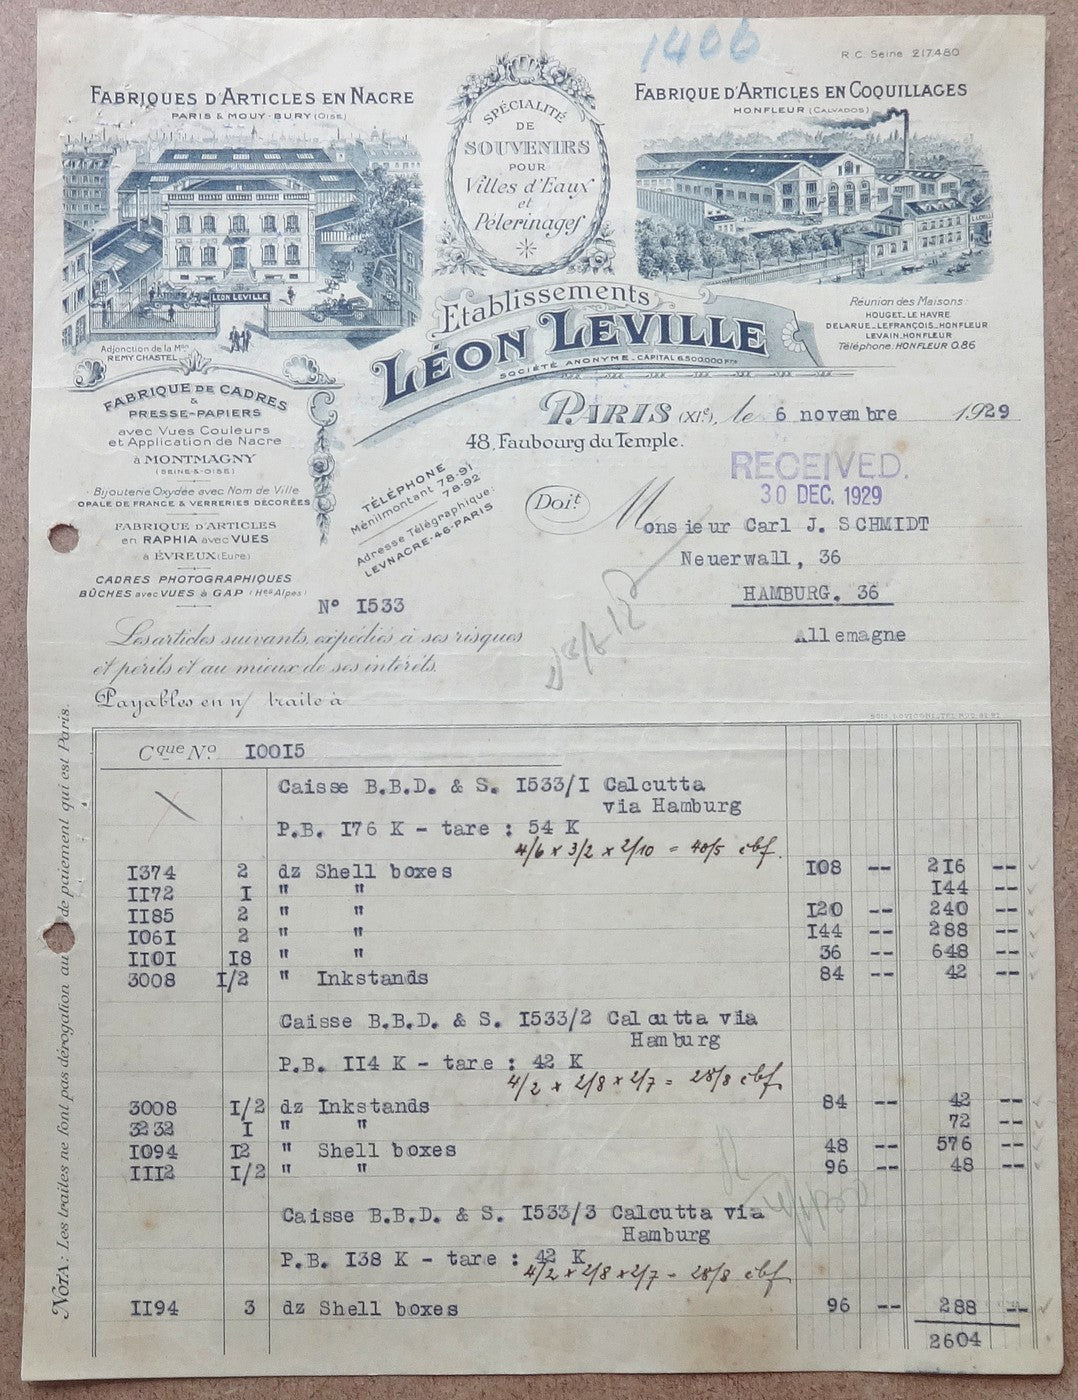 1406
R.C. Seine 217480
FABRIQUES D'ARTICLES EN NACRE
PARIS & MOUY-BURY (OISE)
SPÉCIALITÉ
DE
SOUVENIRS
POUR
Villes d'Eaux
et
Pèlerinages
FABRIQUE D'ARTICLES EN COQUILLAGES
HONFLEUR (CALVADOS)
LEON LEVILLE
Adjonction de la Mon
REMY CHASTEL
Etablissements
LÉON LEVILLE
SOCIÉTÉ ANONYME. CAPITAL 6.500.000 Frs
Réunion des Maisons:
HOUGET_LE HAVRE
DELARUE_LEFRANÇOIS_HONFLEUR
LEVAIN_HONFLEUR
Téléphone: HONFLEUR 0.86
FABRIQUE DE CADRES
&
PRESSE-PAPIERS
avec Vues Couleurs
et Application de Nacre
à MONTMAGNY
(SEINE-&-OISE)
Bijouterie Oxydée avec Nom de Ville
OPALE DE FRANCE & VERRERIES DÉCORÉES
FABRIQUE D'ARTICLES
EN RAPHIA avec VUES
à ÉVREUX (Eure)
CADRES PHOTOGRAPHIQUES
BÛCHES avec VUES à GAP (Htes Alpes)
PARIS (XIe), le 6 novembre 1929
48, Faubourg du Temple.
TÉLÉPHONE
Ménilmontant 78-91
78-92
Adresse Télégraphique:
LEVNACRE-46-PARIS
RECEIVED.
30 DEC. 1929
Doit
Monsieur Carl J. SCHMIDT
Neuerwall, 36
HAMBURG. 36
Allemagne
N° I533
Les articles suivants, expédiés à ses risques
et périls et au mieux de ses intérêts.
Payables en n/ traite à
NOTA: Les traites ne font pas dérogation au de paiement qui est Paris.
Cque No. I00I5
Caisse B.B.D. & S. I533/I Calcutta
via Hamburg
P.B. I76 K - tare : 54 K
4/6 x 3/2 x 2/10 = 40/5 cbf.
I374 2 dz Shell boxes I08 -- 2I6 --
II72 I " " I44 --
II85 2 " " I20 -- 240 --
I06I 2 " " I44 -- 288 --
II0I I8 " " 36 -- 648 --
3008 I/2 " Inkstands 84 -- 42 --
Caisse B.B.D. & S. I533/2 Calcutta via
Hamburg
P.B. II4 K - tare : 42 K
4/2 x 2/8 x 2/7 = 28/8 cbf.
3008 I/2 dz Inkstands 84 -- 42 --
3232 I " " 72 --
I094 I2 " Shell boxes 48 -- 576 --
III2 I/2 " " 96 -- 48 --
Caisse B.B.D. & S. I533/3 Calcutta via
Hamburg
P.B. I38 K - tare : 42 K
4/2 x 2/8 x 2/7 = 28/8 cbf.
II94 3 dz Shell boxes 96 -- 288 --
2604